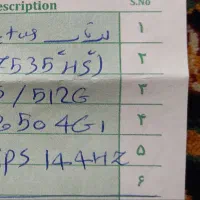 escription S.No
tus لپ تاپ ۱
7535 HS) ۲
5/512G ۳
2650 4G1 ۴
ips 144HZ ۵
۶